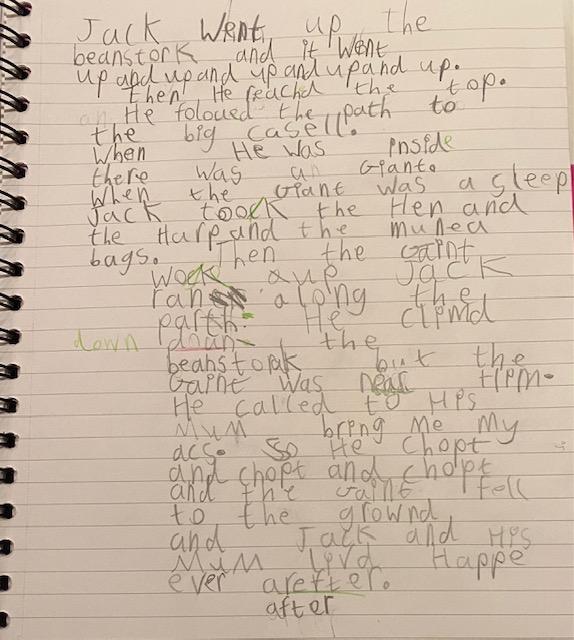 Jack Went up the
beanstork and it Went
up and up and up and up and up.
then He reachd the top.
an He foloued the path to
the big casell.
When He was inside
there was an Giant.
When the Giant was a sleep
Jack toock the Hen and
the Harp and the muned
bags. Then the Gaint
wock aup Jack
ran along the
parth. He climd
down doun the
beanstoak but the
Gaint was near him.
He called to His
Mum bring Me My
acs. So He chopt
and chopt and chopt
and the Gaint fell
to the grownd
and Jack and His
Mum livd Happe
ever arefter.
after